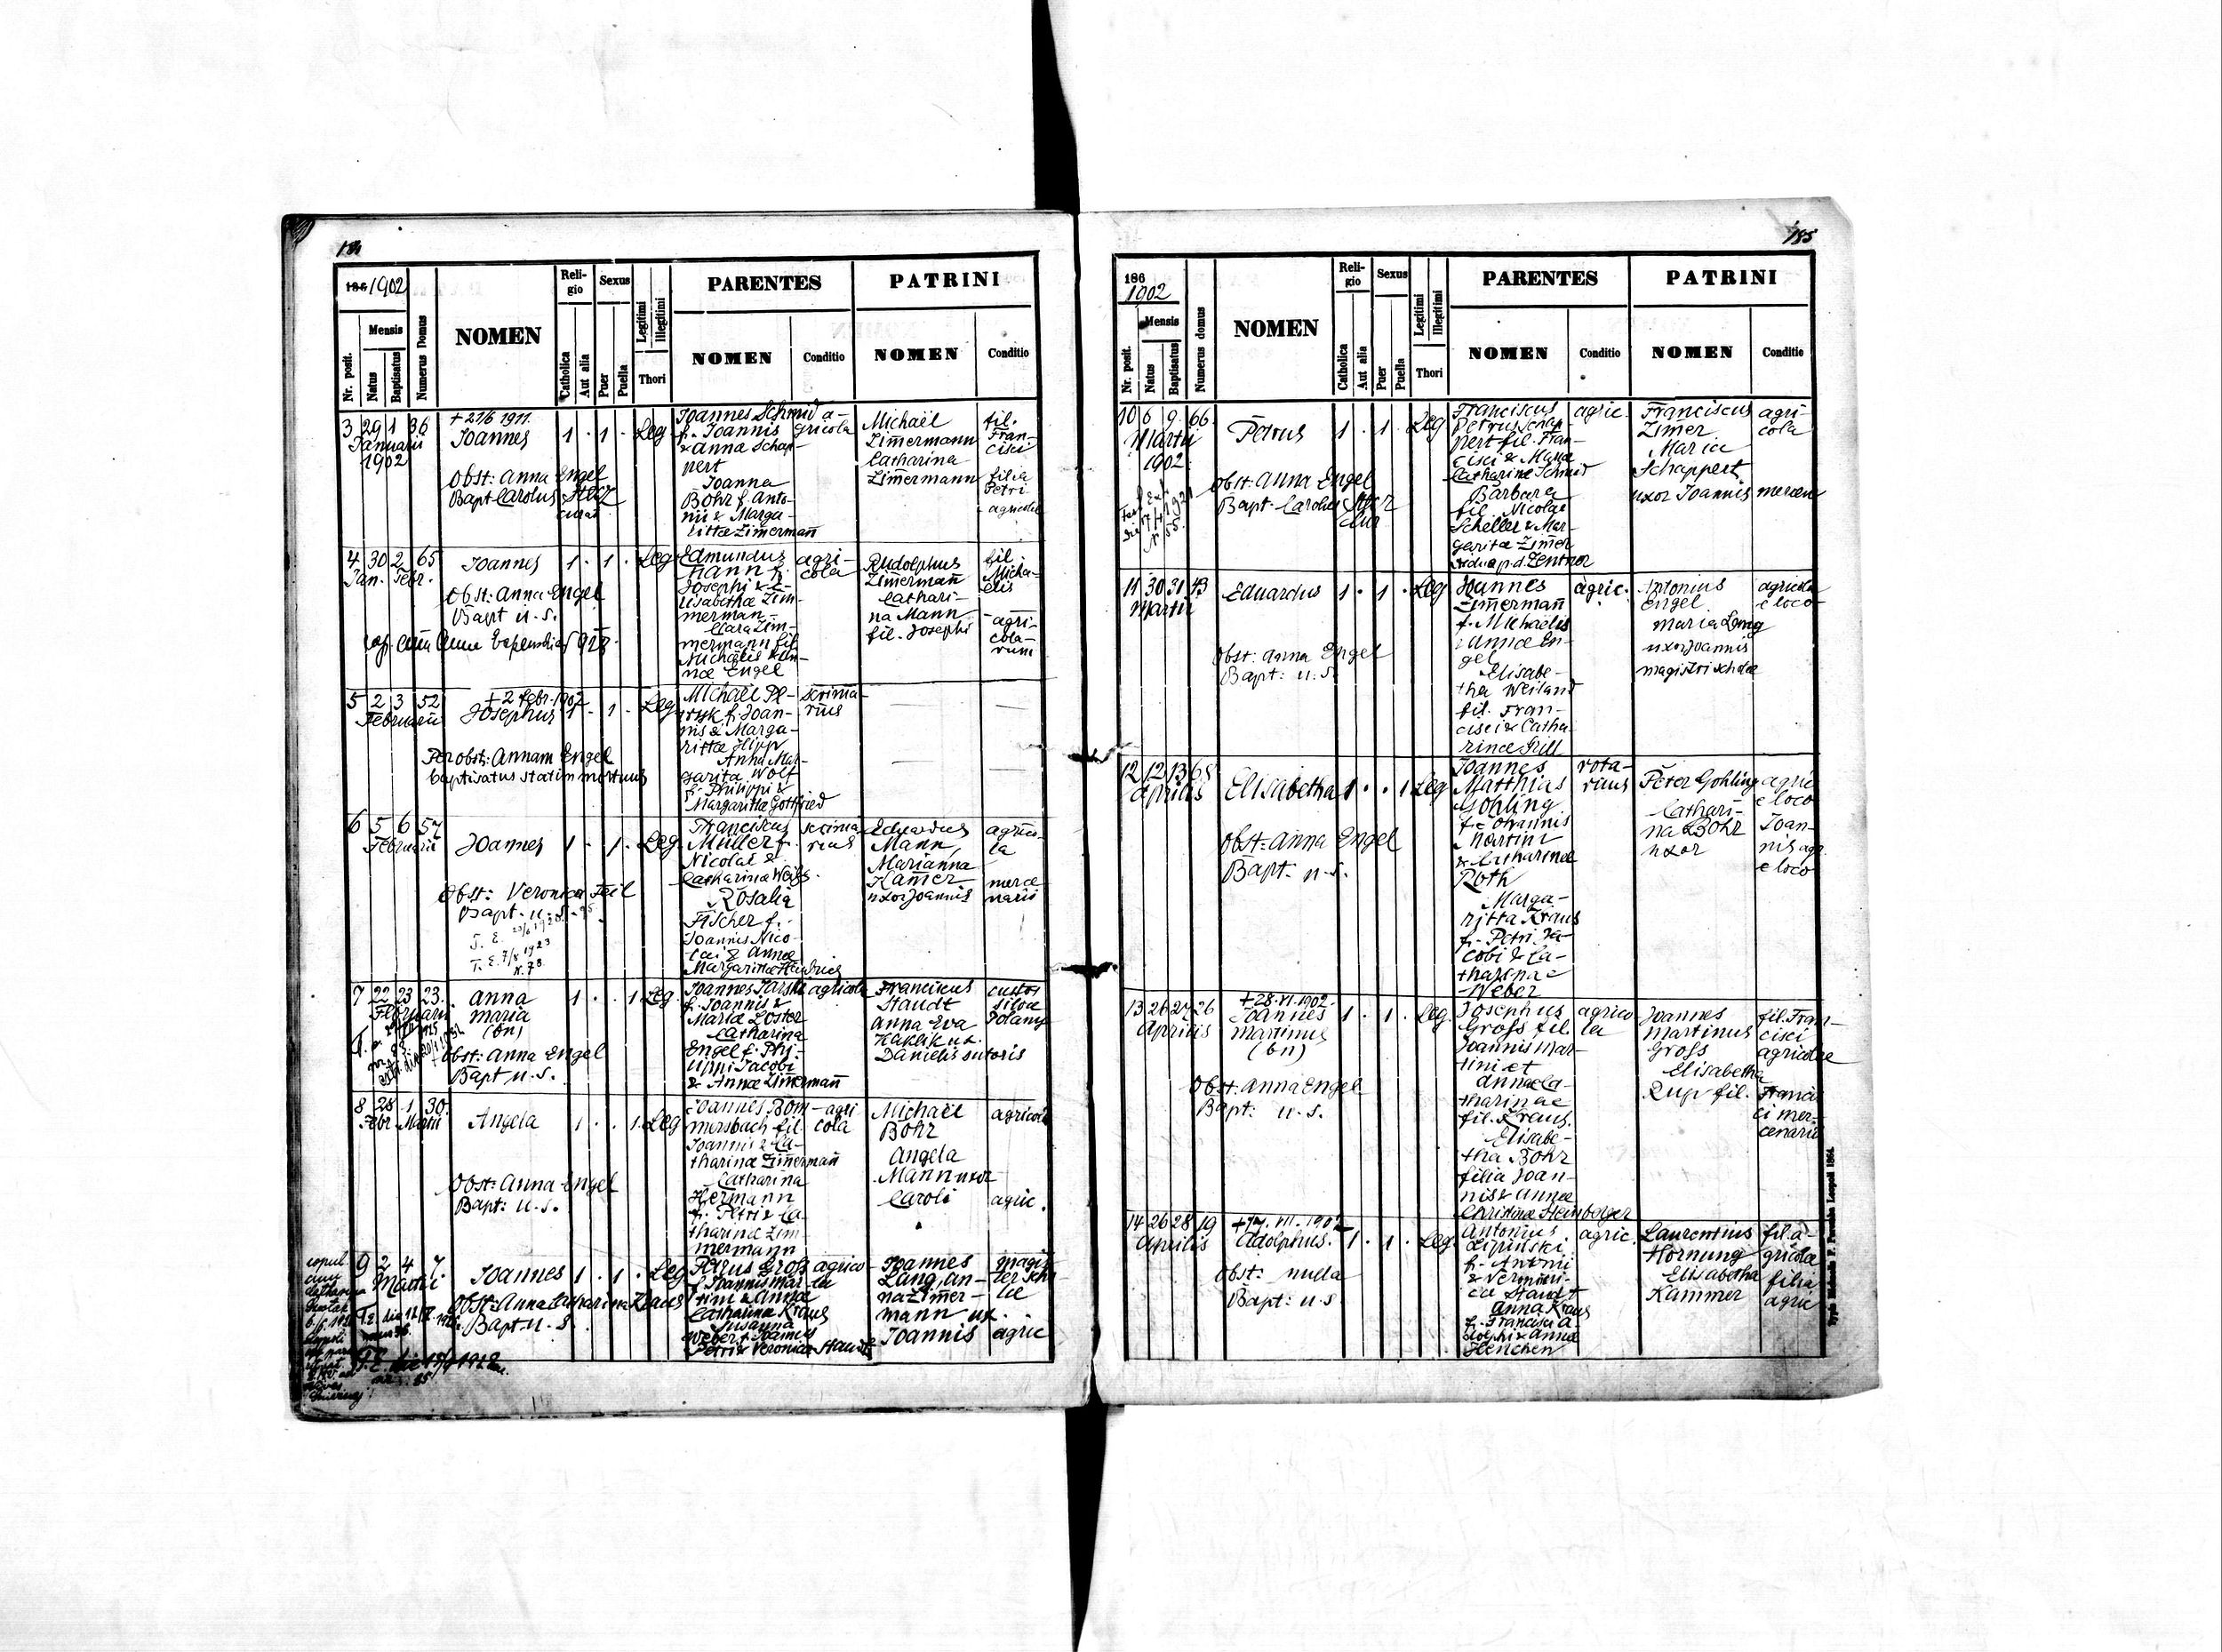 184
1902
Nr. posit.
Mensis
Natus
Baptisatus
Numerus Domus
NOMEN
Reli-
gio
Catholica
Aut alia
Sexus
Puer
Puella
Legitimi
Illegitimi
Thori
PARENTES
NOMEN
Conditio
PATRINI
NOMEN
Conditio
3 29 1 36
Januarii
1902
Joannes
1 . 1 . Leg
Obst: Anna Engel
Bapt Carolus
Joannes Schmid
f. Joannis
& Anna Schap-
pert
Joanna
Bohr f. Anto-
nii & Marga-
rittæ Zimermann
a-
gricola
Michaël
Zimermann
Catharina
Zimermann
fil.
Fran-
cisci
filia
Petri
agricolæ
4 30 2 65
Jan. Febr.
Joannes
1 . 1 . Leg
Obst: Anna Engel
Bapt u. s.
Edmundus
Mann f.
Josephi & E-
lisabethæ Zim-
merman
Clara Zim-
mermann fil
Michaelis & An-
næ Engel
agri-
cola
Rudolphus
Zimermann
Cathari-
na Mann
fil. Josephi
fil
Micha-
elis
agri-
cola-
rum
5 2 3 52
Februarii
+ 2 Febr. 1902
Josephus
1 . 1 . Leg
Per obst: Annam Engel
baptisatus statim mortuus
Michaël
f. Joan-
nis & Marga-
rittæ Hipp
Anna Mar-
garita Wolf
f. Philippi &
Margarittæ Gottfried
scrinia-
rius
6 5 6 57
Februarii
Joannes
1 . 1 . Leg
Obst: Veronica Feil
Bapt. u. s.
T. E. 7/8 1923
N. 78.
Franciscus
Müller f.
Nicolai &
Catharinæ Weiss.
Rosalia
Fischer f.
Joannis Nico-
lai & Annæ
Margarittæ
scrinia-
rius
Eduardus
Mann,
Marianna
Kamer
uxor Joannis
agrico-
la
merce-
narii
7 22 23 23.
Februarii
Anna
Maria
(bn)
1 . . 1 Leg.
Obst: Anna Engel
Bapt u. s.
Joannes
f. Joannis &
Maria
Catharina
Engel f. Phi-
lippi Jacobi
& Annæ Zimermann
agricola
Franciscus
Staudt
Anna Eva
Danielis sutoris
custos
silvæ
8 28 1 30.
Febr. Martii
Angela
1 . . 1. Leg
Obst: Anna Engel
Bapt: u. s.
Joannes Bom-
mersbach fil.
Joannis & Ca-
tharinæ Zimermann
Catharina
Hermann
f. Petri & Ca-
tharinæ Zim-
mermann
agri
cola
Michaël
Bohr
Angela
Mann uxor
Caroli
agricola
agric.
9 2 4 7.
Martii
Joannes
1 . 1 . Leg
Obst: Anna Catharina Kraus
Bapt. u. s.
Petrus Gross
f. Joannis Mar-
tini & Annæ
Catharinæ Kraus
Susanna
Weber f. Joannis
Petri & Veronicæ Staudt
agrico-
la
Joannes
Lang, an-
na Zimer-
mann ux.
Joannis
magis-
ter scho-
læ
agric
185
186
1902
Nr. posit.
Mensis
Natus
Baptisatus
Numerus domus
NOMEN
Reli-
gio
Catholica
Aut alia
Sexus
Puer
Puella
Legitimi
Illegitimi
Thori
PARENTES
NOMEN
Conditio
PATRINI
NOMEN
Conditio
10 6 9 66.
Martii
1902.
Petrus
1 . 1 . Leg
Obst: Anna Engel
Bapt. Carolus
Franciscus
Petrus Schap-
pert fil. Fran-
cisci & Mariæ
Catharinæ Schmid
Barbara
fil. Nicolai
Scheller & Mar-
garitæ Zimer
agric.
Franciscus
Zimer
Maria
Schappert
uxor Joannis
agri-
cola
mercen
11 30 31 43
Martii
Eduardus
1 . 1 . Leg
Obst: Anna Engel
Bapt: u. s.
Joannes
Zimermann
f. Michaelis
Annæ En-
gel
Elisabe-
tha Weiland
fil. Fran-
cisci & Catha-
rinæ Grill
agric.
Antonius
Engel
Maria Lang
uxor Joannis
magistri scholæ
agricola
e loco
12 12 13 68
Aprilis
Elisabetha
1 . . 1 Leg
Obst: Anna Engel
Bapt: u. s.
Joannes
Matthias
Gohling
f. Johannis
Martini
& Catharinæ
Roth
Marga-
ritta Kraus
f. Petri Ja-
cobi & Ca-
tharinae
Weber
rota-
rius
Peter Gohling
Cathari-
na Bohr
uxor
agric
e loco
Joan-
nis agr.
e loco
13 26 27 26
Aprilis
+28.VI.1902.
Joannes
Martinus
(bn)
1 . 1 . Leg.
Obst: Anna Engel
Bapt: u. s.
Josephus
Gross fil.
Joannis Mar-
tini et
Annæ Ca-
tharinae
fil. Kraus.
Elisabe-
tha Bohr
filia Joan-
nis & Annæ
Christinæ Steinberger
agrico
la
Joannes
Martinus
Gross
Elisabetha
Rup fil.
fil. Fran-
cisci
agricolæ
Francis
ci mer-
cenarii
14 26 28 19
Aprilis
+17. VII. 1902
Adolphus.
1 . 1 . Leg
Obst: nulla
Bapt: u. s
Antonius
Lipinski
f. Antoni
& Veroni-
cæ Staudt
Anna Kraus
f. Francisci A-
dolphi & Annæ
Henchen
agric.
Laurentius
Hornung
Elisabetha
Kammer
fil. a-
gricolæ
filia
agric